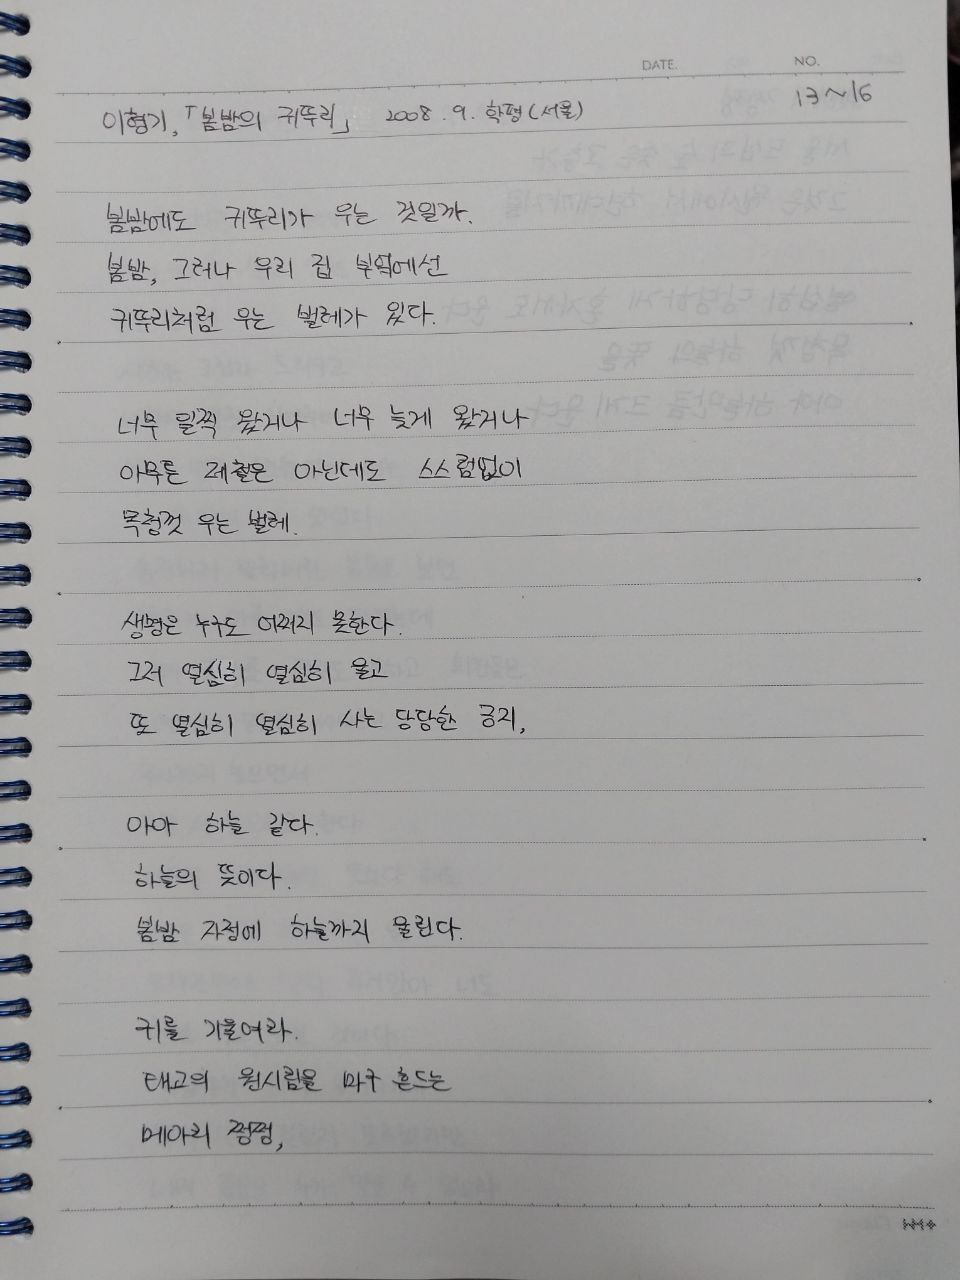 DATE. NO.
13~16
이형기, 「봄밤의 귀뚜리」 2008. 9. 학평(서울)
봄밤에도 귀뚜리가 우는 것일까.
봄밤, 그러나 우리 집 부엌에선
귀뚜리처럼 우는 벌레가 있다.
너무 일찍 왔거나 너무 늦게 왔거나
아무튼 제철은 아닌데도 스스럼없이
목청껏 우는 벌레.
생명은 누구도 어쩌지 못한다.
그저 열심히 열심히 울고
또 열심히 열심히 사는 당당한 긍지,
아아 하늘 같다.
하늘의 뜻이다.
봄밤 자정에 하늘까지 울린다.
귀를 기울여라.
태고의 원시림을 마구 흔드는
메아리 쩡쩡,